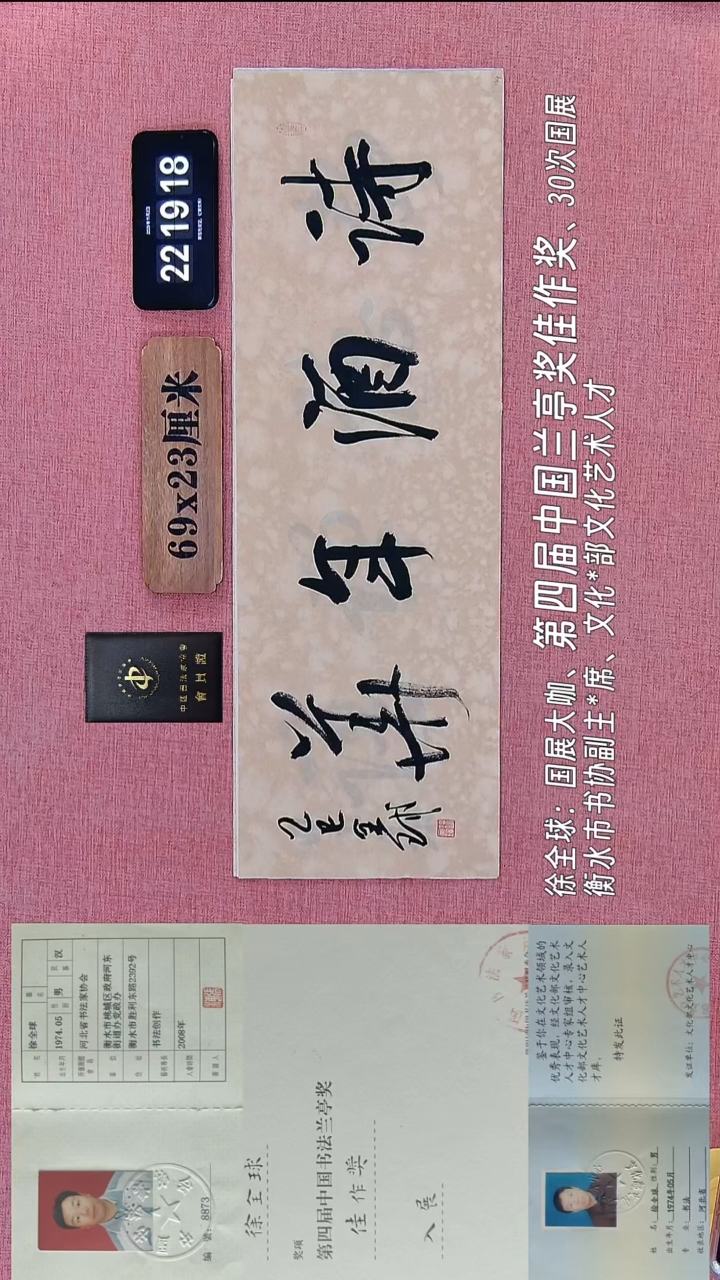 22 19 18
69x23厘米
中国书法家协会
會員證
诗酒年華
乙巳全球
徐全球：国展大咖、第四届中国兰亭奖佳作奖、30次国展
衡水市书协副主*席、文化*部文化艺术人才
姓名 徐全球
出生年月 1974.05 性别 男 民族 汉
河北省书法家协会
衡水市桃城区政府河东
街道办党政办
衡水市胜利东路2392号
书法创作
入会时间 2008年
编号：8873
徐全球
奖项
第四届中国书法兰亭奖
佳作奖
入展
鉴于你在文化艺术领域的
优秀表现，经文化部文化艺术
人才中心专家组审核，录入文
化部文化艺术人才中心艺术人
才库。
特发此证
发证单位：文化部文化艺术人才中心
姓名：徐全球 性别：男
出生年月：1974年05月
专业：书法
收录地区：河北省